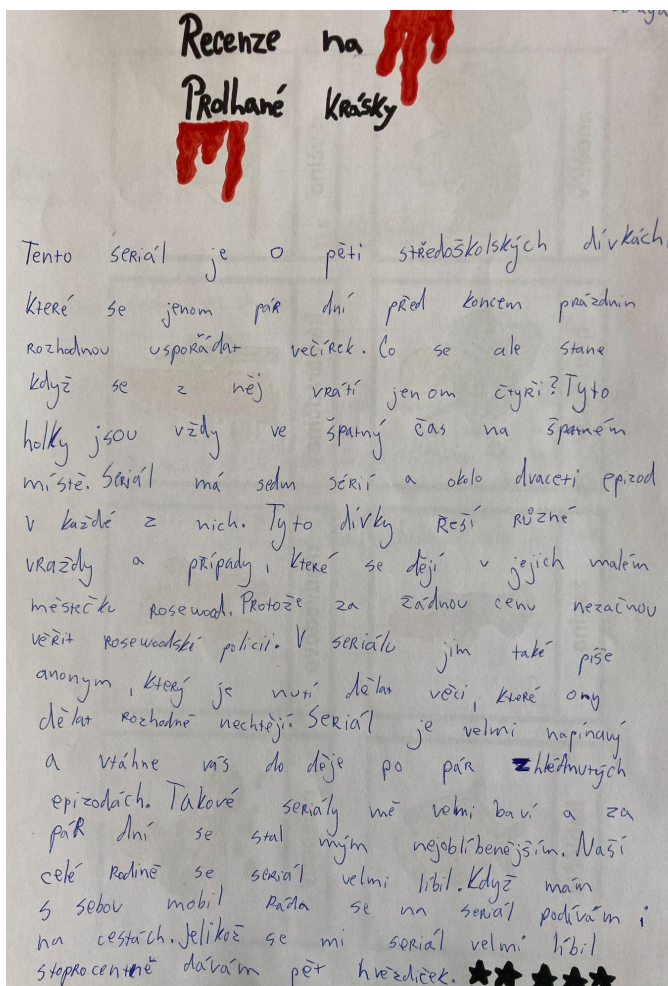 Recenze na
Prolhané krásky
Tento seriál je o pěti středoškolských dívkách,
které se jenom pár dní před koncem prázdnin
rozhodnou uspořádat večírek. Co se ale stane
když se z něj vrátí jenom čtyři? Tyto
holky jsou vždy ve špatný čas na špatném
místě. Seriál má sedm sérií a okolo dvaceti epizod
v každé z nich. Tyto dívky řeší různé
vraždy a případy, které se dějí v jejich malém
městečku Rosewood. Protože za žádnou cenu nezačnou
věřit rosewoodské policii. V seriálu jim také píše
anonym, který je nutí dělat věci, které ony
dělat rozhodně nechtějí. Seriál je velmi napínavý
a vtáhne vás do děje po pár zhlédnutých
epizodách. Takové seriály mě velmi baví a za
pár dní se stal mým nejoblíbenějším. Naší
celé rodině se seriál velmi líbil. Když mám
s sebou mobil ráda se na seriál podívám i
na cestách. Jelikož se mi seriál velmi líbil
stoprocentně dávám pět hvězdiček. ★★★★★